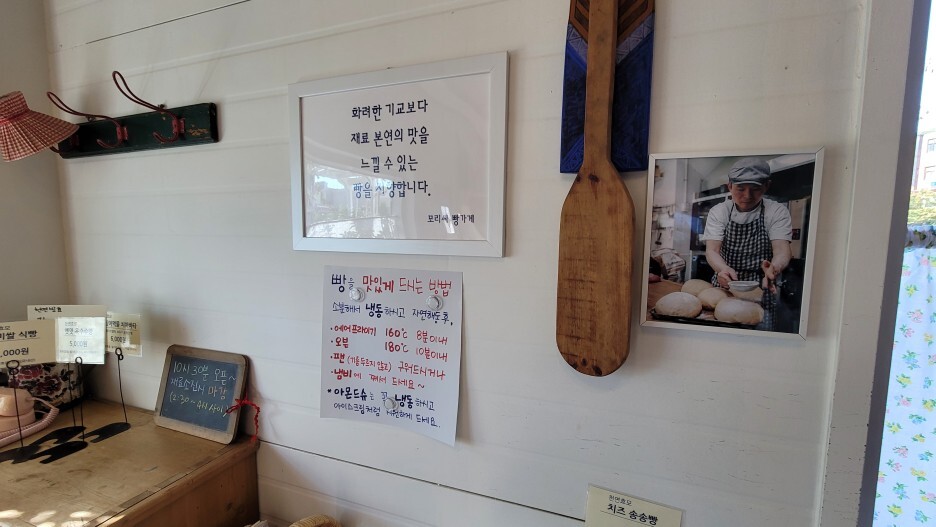 화려한 기교보다
재료 본연의 맛을
느낄 수 있는
빵을 지향합니다.
꼬리씨 빵가게
빵을 맛있게 드시는 방법
소분해서 냉동하시고 자연해동후,
·에어프라이기 160℃ 8분이내
·오븐 180℃ 10분이내
·팬(기름두르지 않고) 구워드시거나
·냄비에 쪄서 드세요~
·아몬드슈는 꼭 냉동하시고
아이스크림처럼 시원하게 드세요.
10시 30분 오픈~
재료소진시 마감
(2:30~4시사이)
쌀 식빵
5,000원
천연효모
치즈 송송빵